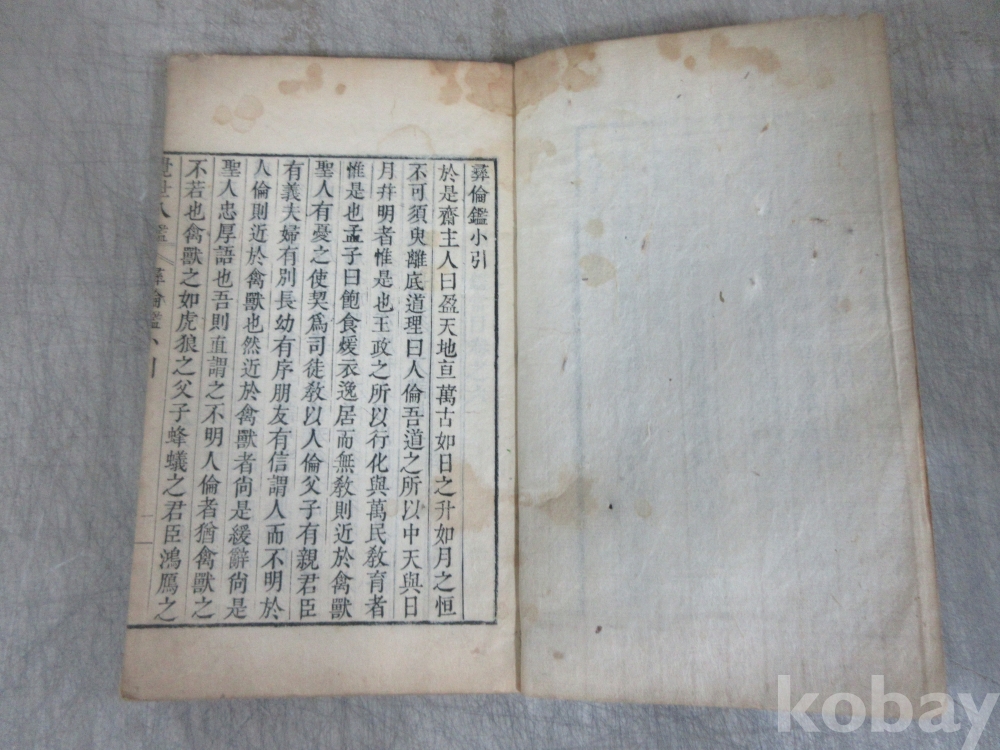 彛倫鑑小引
於是齋主人曰盈天地亘萬古如日之升如月之恒
不可須臾離底道理曰人倫吾道之所以中天與日
月幷明者惟是也王政之所以行化與萬民敎育者
惟是也孟子曰飽食煖衣逸居而無敎則近於禽獸
聖人有憂之使契爲司徒敎以人倫父子有親君臣
有義夫婦有別長幼有序朋友有信謂人而不明於
人倫則近於禽獸也然近於禽獸者尙是緩辭尙是
聖人忠厚語也吾則直謂之不明人倫者猶禽獸之
不若也禽獸之如虎狼之父子蜂蟻之君臣鴻鴈之
覺世八鑑 彛倫鑑小引
kobay